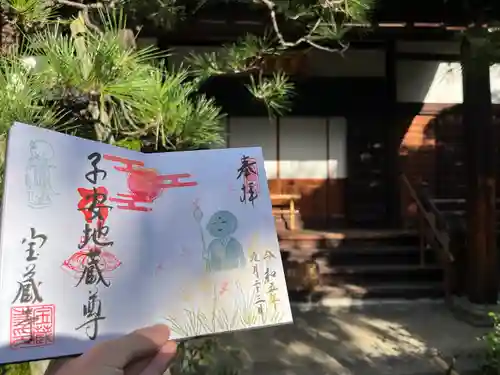 奉拝
令和五年
九月二十三日
子安地蔵尊
宝蔵